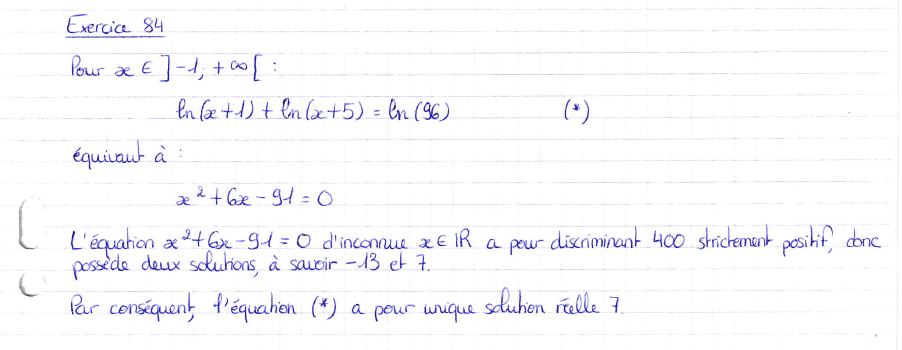 Exercice 84
Pour x ∈ ]-1; +∞[ :
ln(x+1) + ln(x+5) = ln(96) (*)
équivaut à :
x² + 6x - 91 = 0
L'équation x² + 6x - 91 = 0 d'inconnue x ∈ ℝ a pour discriminant 400 strictement positif, donc
possède deux solutions, à savoir -13 et 7.
Par conséquent, l'équation (*) a pour unique solution réelle 7.